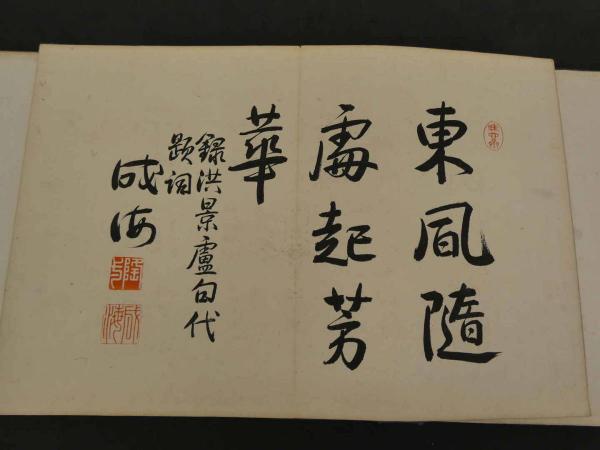 東風隨
處起芳
華
錄洪景盧句代
題詞
成海